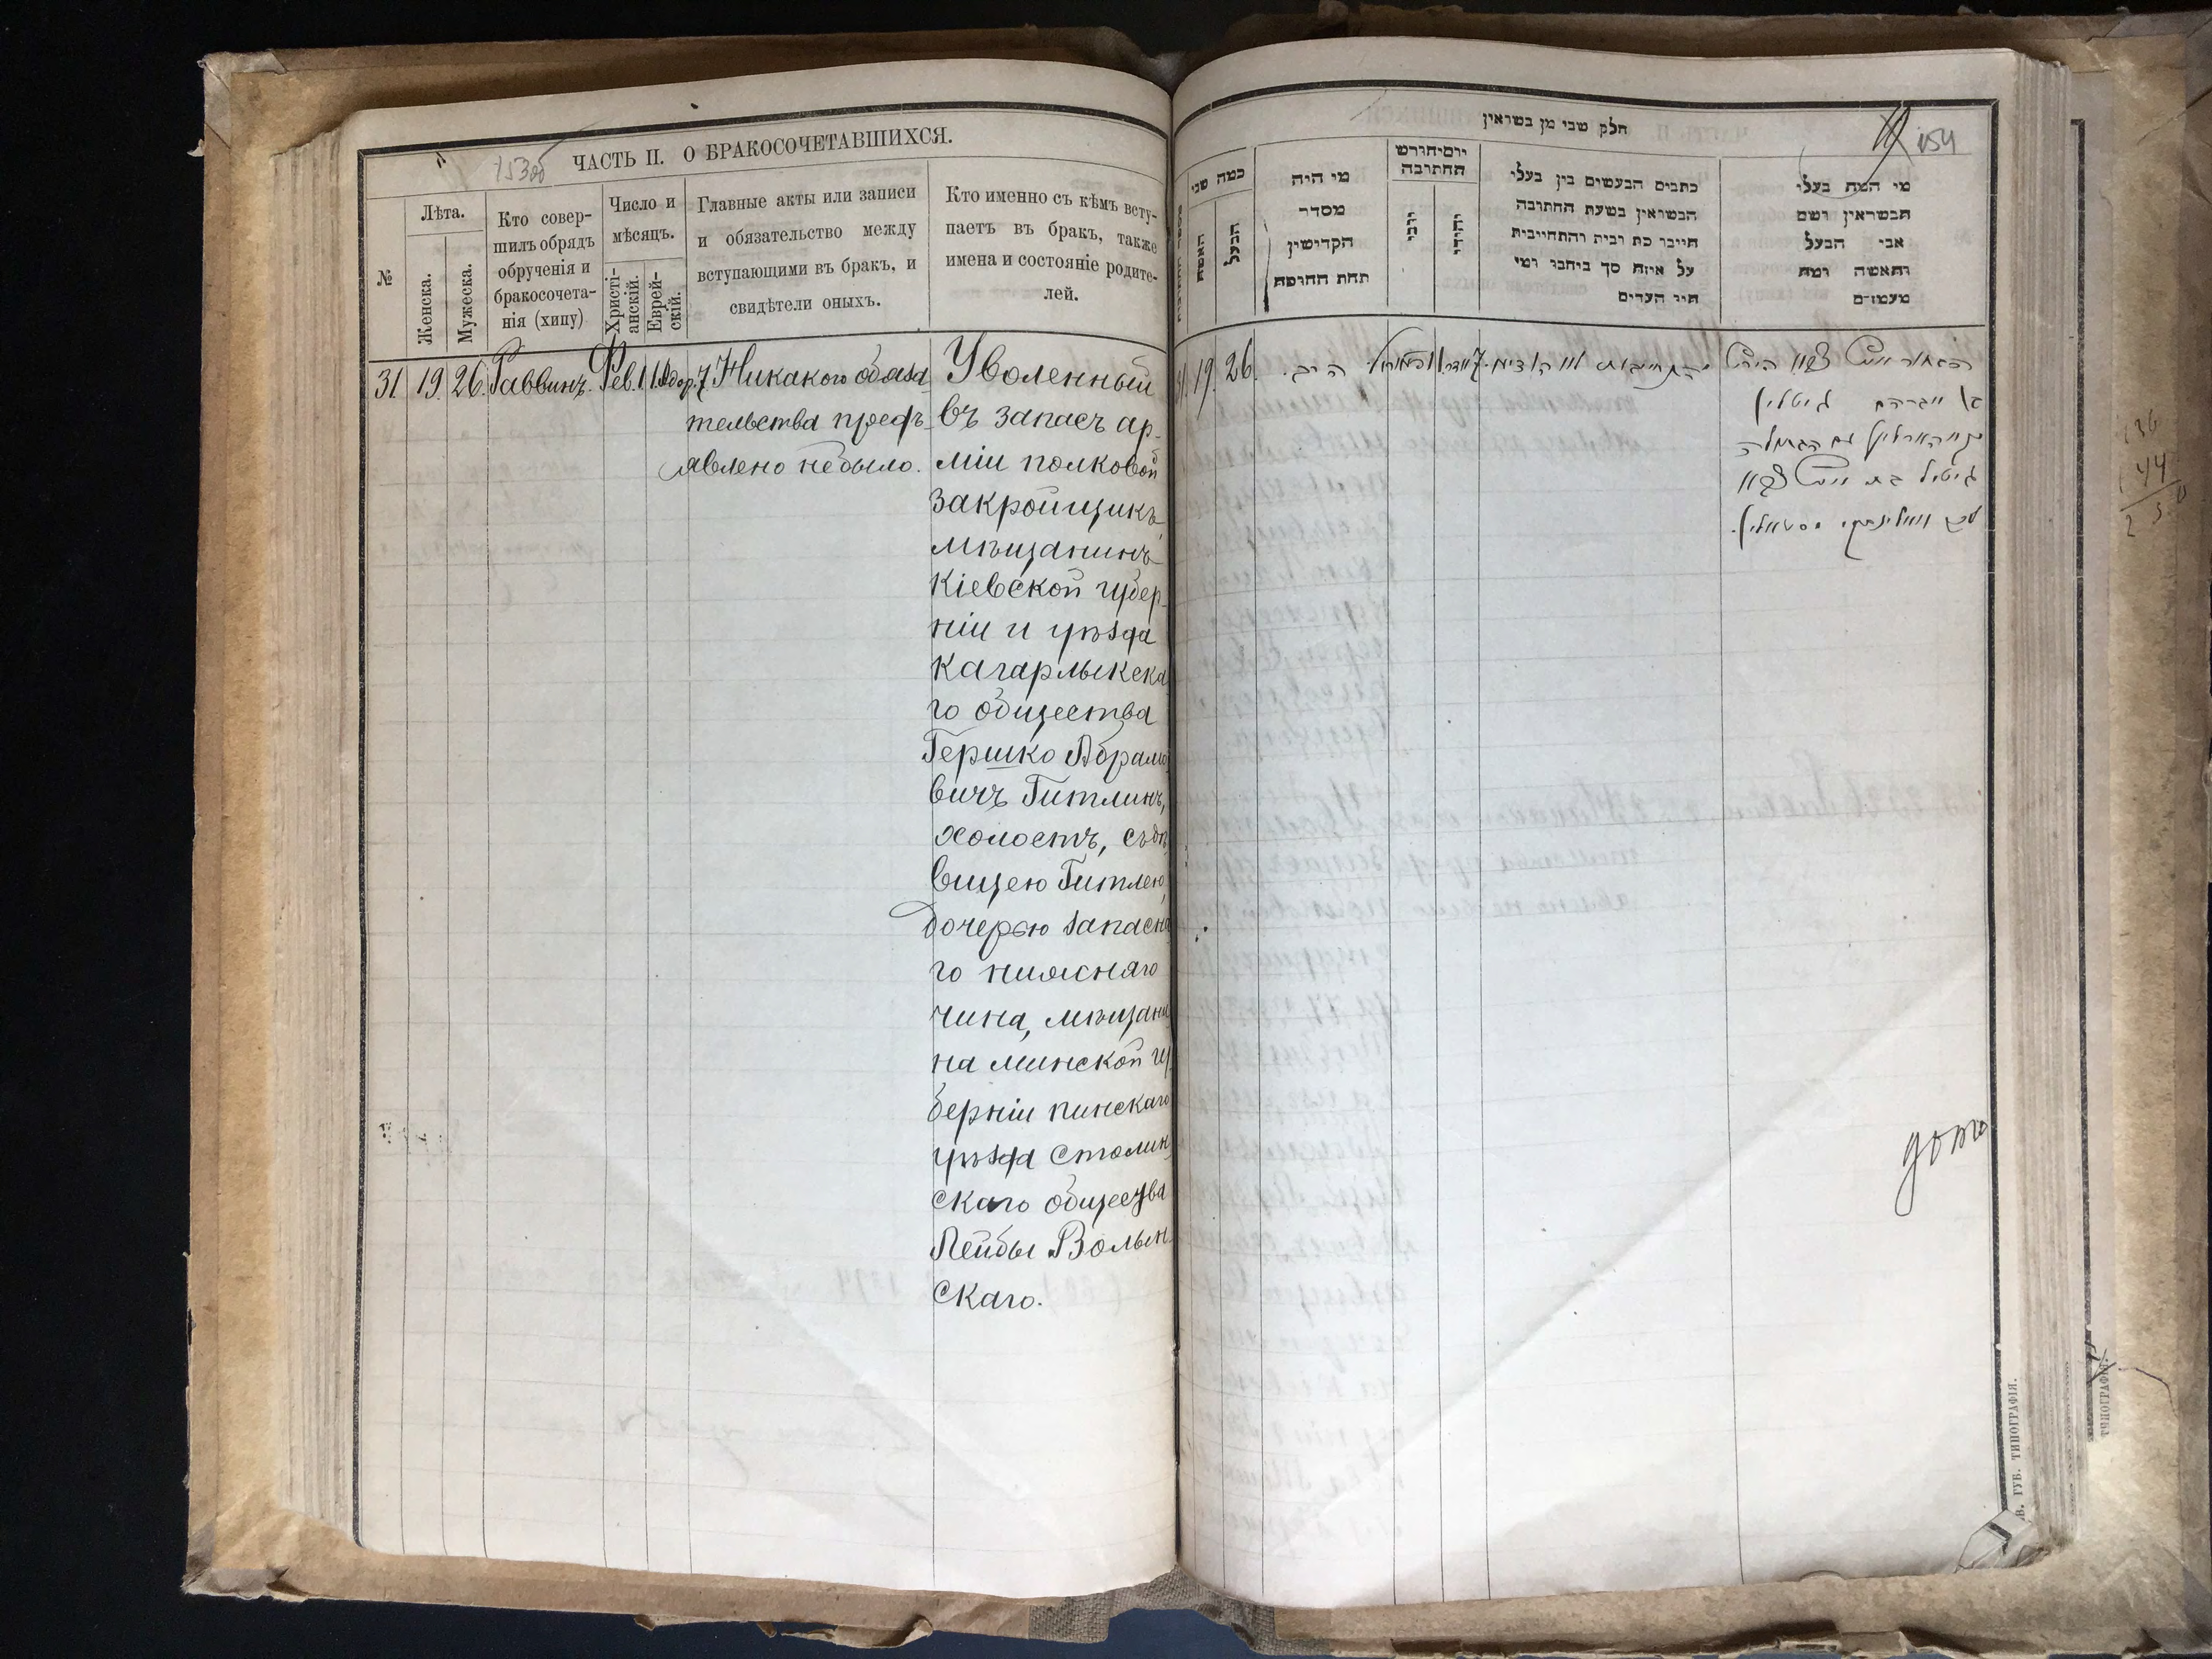 ЧАСТЬ II. О БРАКОСОЧЕТАВШИХСЯ.
№
Лѣта.
Женска.
Мужеска.
Кто совер-
шилъ обрядъ
обрученія и
бракосочета-
нія (хипу)
Число и
мѣсяцъ.
Христі-
анскій.
Еврей-
скій.
Главные акты или записи
и обязательство между
вступающими въ бракъ, и
свидѣтели оныхъ.
Кто именно съ кѣмъ всту-
паетъ въ бракъ, также
имена и состояніе родите-
лей.
31. 19. 26. Раввинъ. Фев. 11. Адор. 7. Никакого обяза
тельства предъ-
явлено небыло.
Уволенный
въ запасъ ар-
міи полковой
закройщикъ
мѣщанинъ
Кіевской губер-
ніи и уѣзда
Кагарлыкска
го общества
Гершко Абрамо
вичъ Гитлинъ,
холостъ, съ дѣ
вицею Гитлею,
дочерью запасна
го нижняго
чина, мѣщани
на минской гу
берніи пинскаго
уѣзда Столин
скаго общества
Лейбы Волын-
скаго.
חלק שני מן בשראין
154
כמה שני
האשה
הבעל
מי היה
מסדר
הקדישין
תחת החופה
יום וחודש
החתובה
כתבים הנעשים בין בעלי
הנשואין בשעת החתובה
חייבו כת ובית והתחייבית
על איזה סך ביחבו ומי
היו העדים
מי המה בעלי
הנשואין ושם
אבי הבעל
והאשה ומה
מעמדם
31. 19. 26. הרב.
В. ГУБ. ТИПОГРАФІЯ.
ТИПОГРАФІЯ.